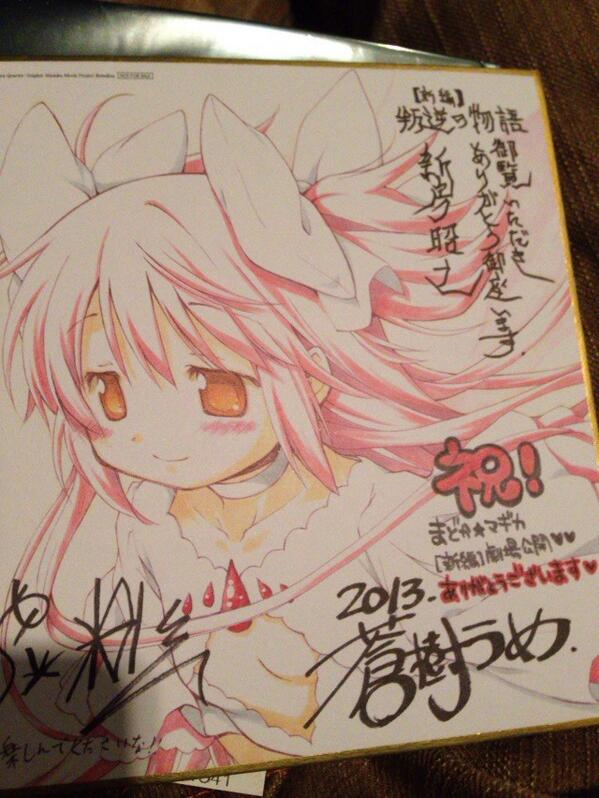 Quartet / Aniplex・Madoka Movie Project Rebellion NOT FOR SALE
[新編]
叛逆の物語
御覧いただき
ありがとう御座います。
新房昭之
祝!
まどか☆マギカ
[新編]劇場公開♥♥
ありがとうございます♥
2013.
蒼樹うめ.
楽しんでくださいな!!